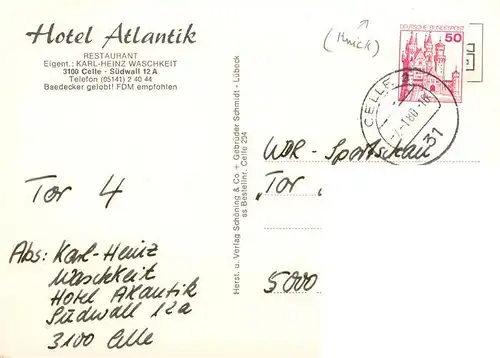 Hotel Atlantik
RESTAURANT
Eigent.: KARL-HEINZ WASCHKEIT
3100 Celle · Südwall 12 A
Telefon (05141) 2 40 44
Baedecker gelobt! FDM empfohlen
(Knick)
DEUTSCHE BUNDESPOST
50
CELLE
31
Herst. u. Verlag Schöning & Co + Gebrüder Schmidt - Lübeck
ss Bestellnr. Celle 294
WDR - Sportschau
„Tor
5000
Tor 4
Abs: Karl-Heinz
Waschkeit
Hotel Atlantik
Südwall 12a
3100 Celle